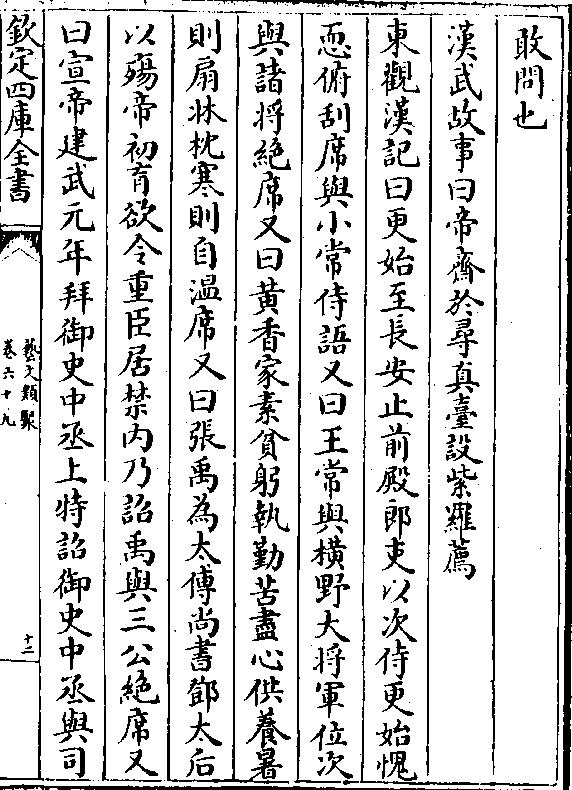 敢問也
漢武故事曰帝齋於尋真臺設紫羅薦
東觀漢記曰更始至長安止前殿郎吏以次侍更始愧
恧俯刮席與小常侍語又曰王常與橫野大將軍位次
與諸将絶席又曰黄香家素貧躬執勤苦盡心供養暑
則扇牀枕寒則自温席又曰張禹為太傅尚書鄧太后
以殤帝初育欲令重臣居禁内乃詔禹與三公絶席又
曰宣帝建武元年拜御史中丞上特詔御史中丞與司
欽定四庫全書
藝文類聚
卷六十九
十二